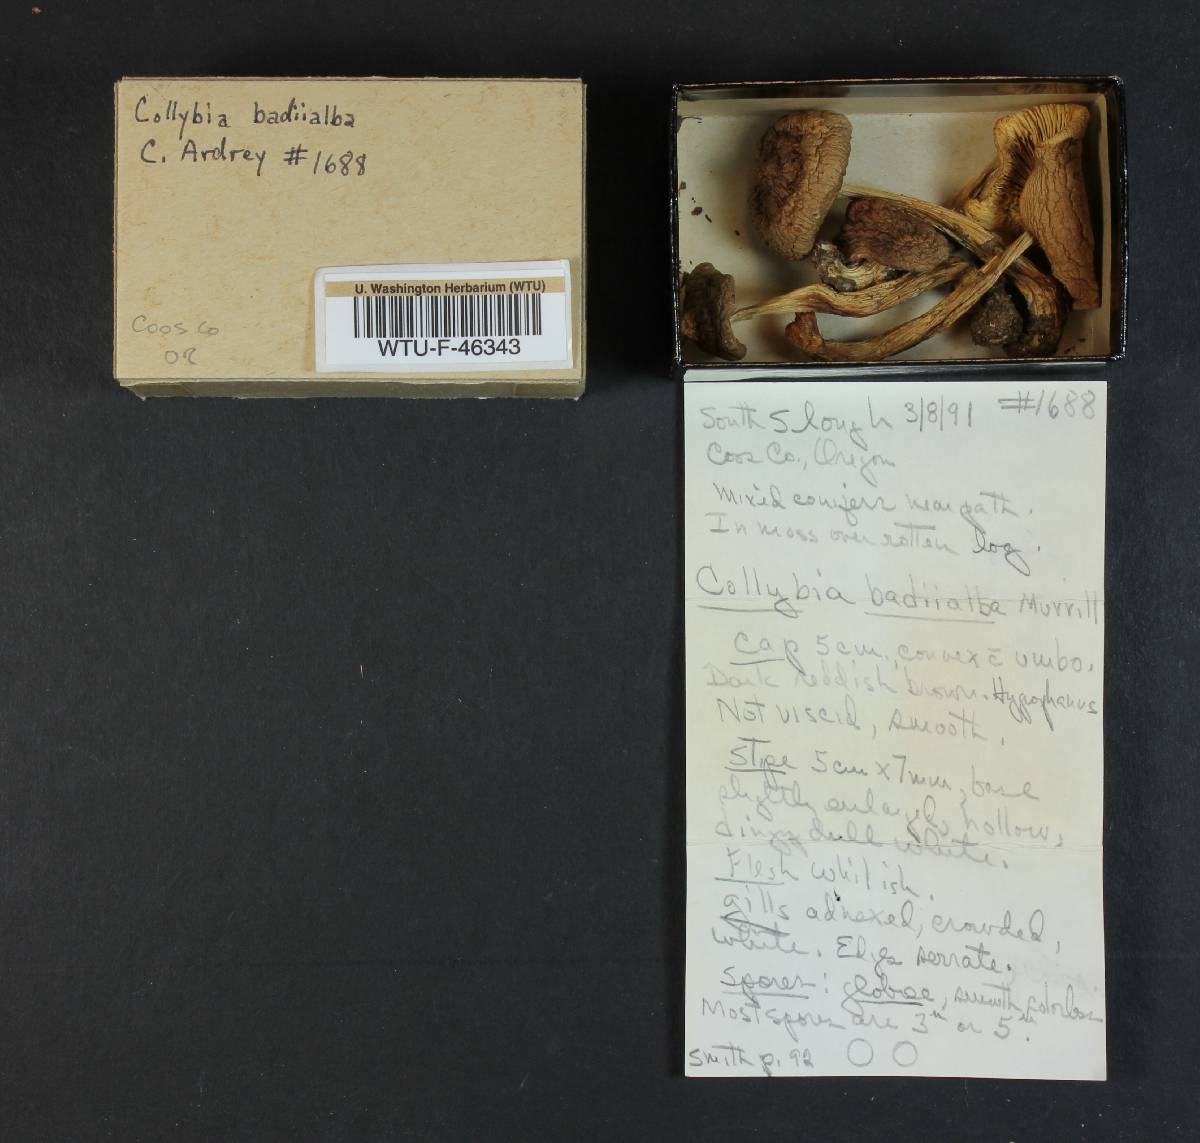 Collybia badiialba
C. Ardrey #1688
Coos Co
OR
U. Washington Herbarium (WTU)
WTU-F-46343
South Slough 3/8/91 #1688
Coos Co., Oregon
Mixed conifers near path.
In moss over rotten log.
Collybia badiialba Murrill
Cap 5 cm, convex c̄ umbo.
Dark reddish brown. Hygrophanus
Not viscid, smooth.
Stipe 5cm x 7mm, base
slightly enlarged, hollow,
dingy dull white.
Flesh whitish.
gills adnexed, crowded,
white. Edge serrate.
Spores: globose, smooth, colorless
Most spores are 3 or 5
Smith p. 92